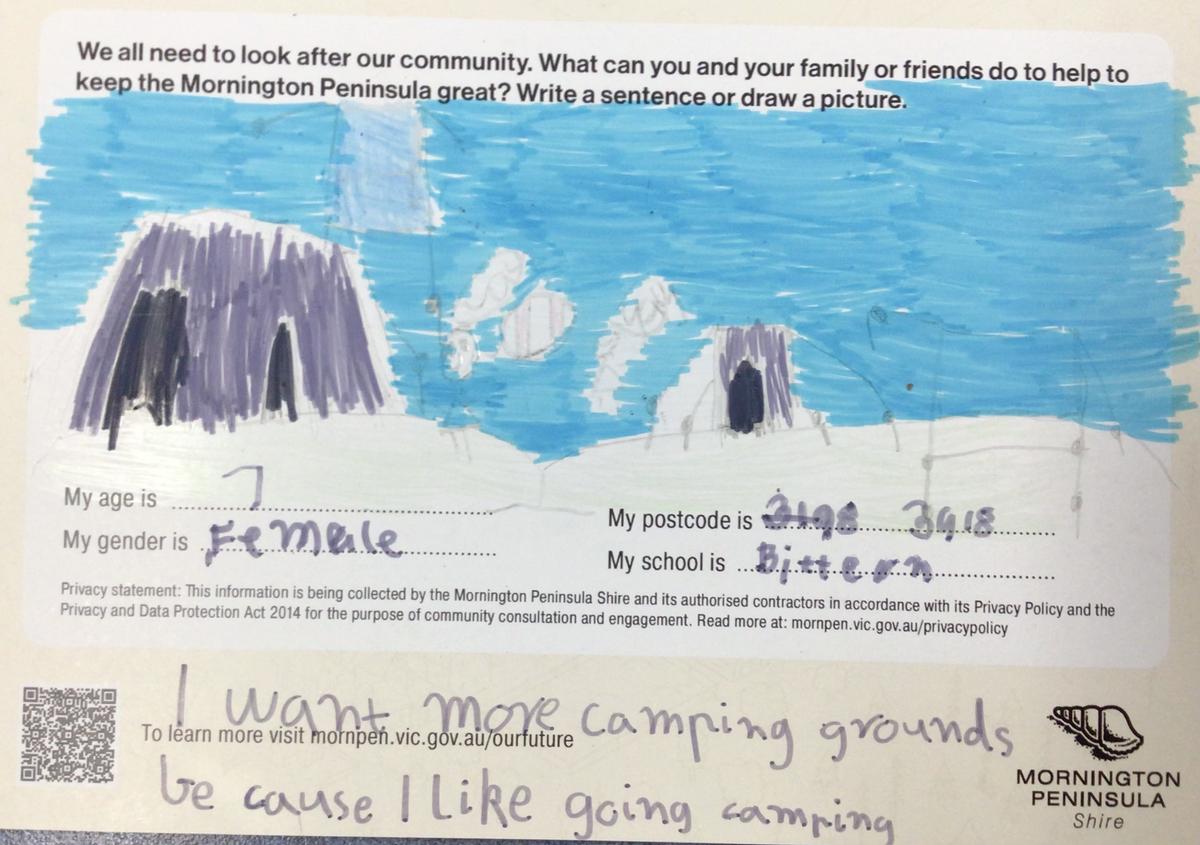 We all need to look after our community. What can you and your family or friends do to help to
keep the Mornington Peninsula great? Write a sentence or draw a picture.
My age is 7
My gender is Female
My postcode is 3198 3918
My school is Bittern
Privacy statement: This information is being collected by the Mornington Peninsula Shire and its authorised contractors in accordance with its Privacy Policy and the
Privacy and Data Protection Act 2014 for the purpose of community consultation and engagement. Read more at: mornpen.vic.gov.au/privacypolicy
I want more camping grounds
To learn more visit mornpen.vic.gov.au/ourfuture
be cause I Like going camping
MORNINGTON
PENINSULA
Shire